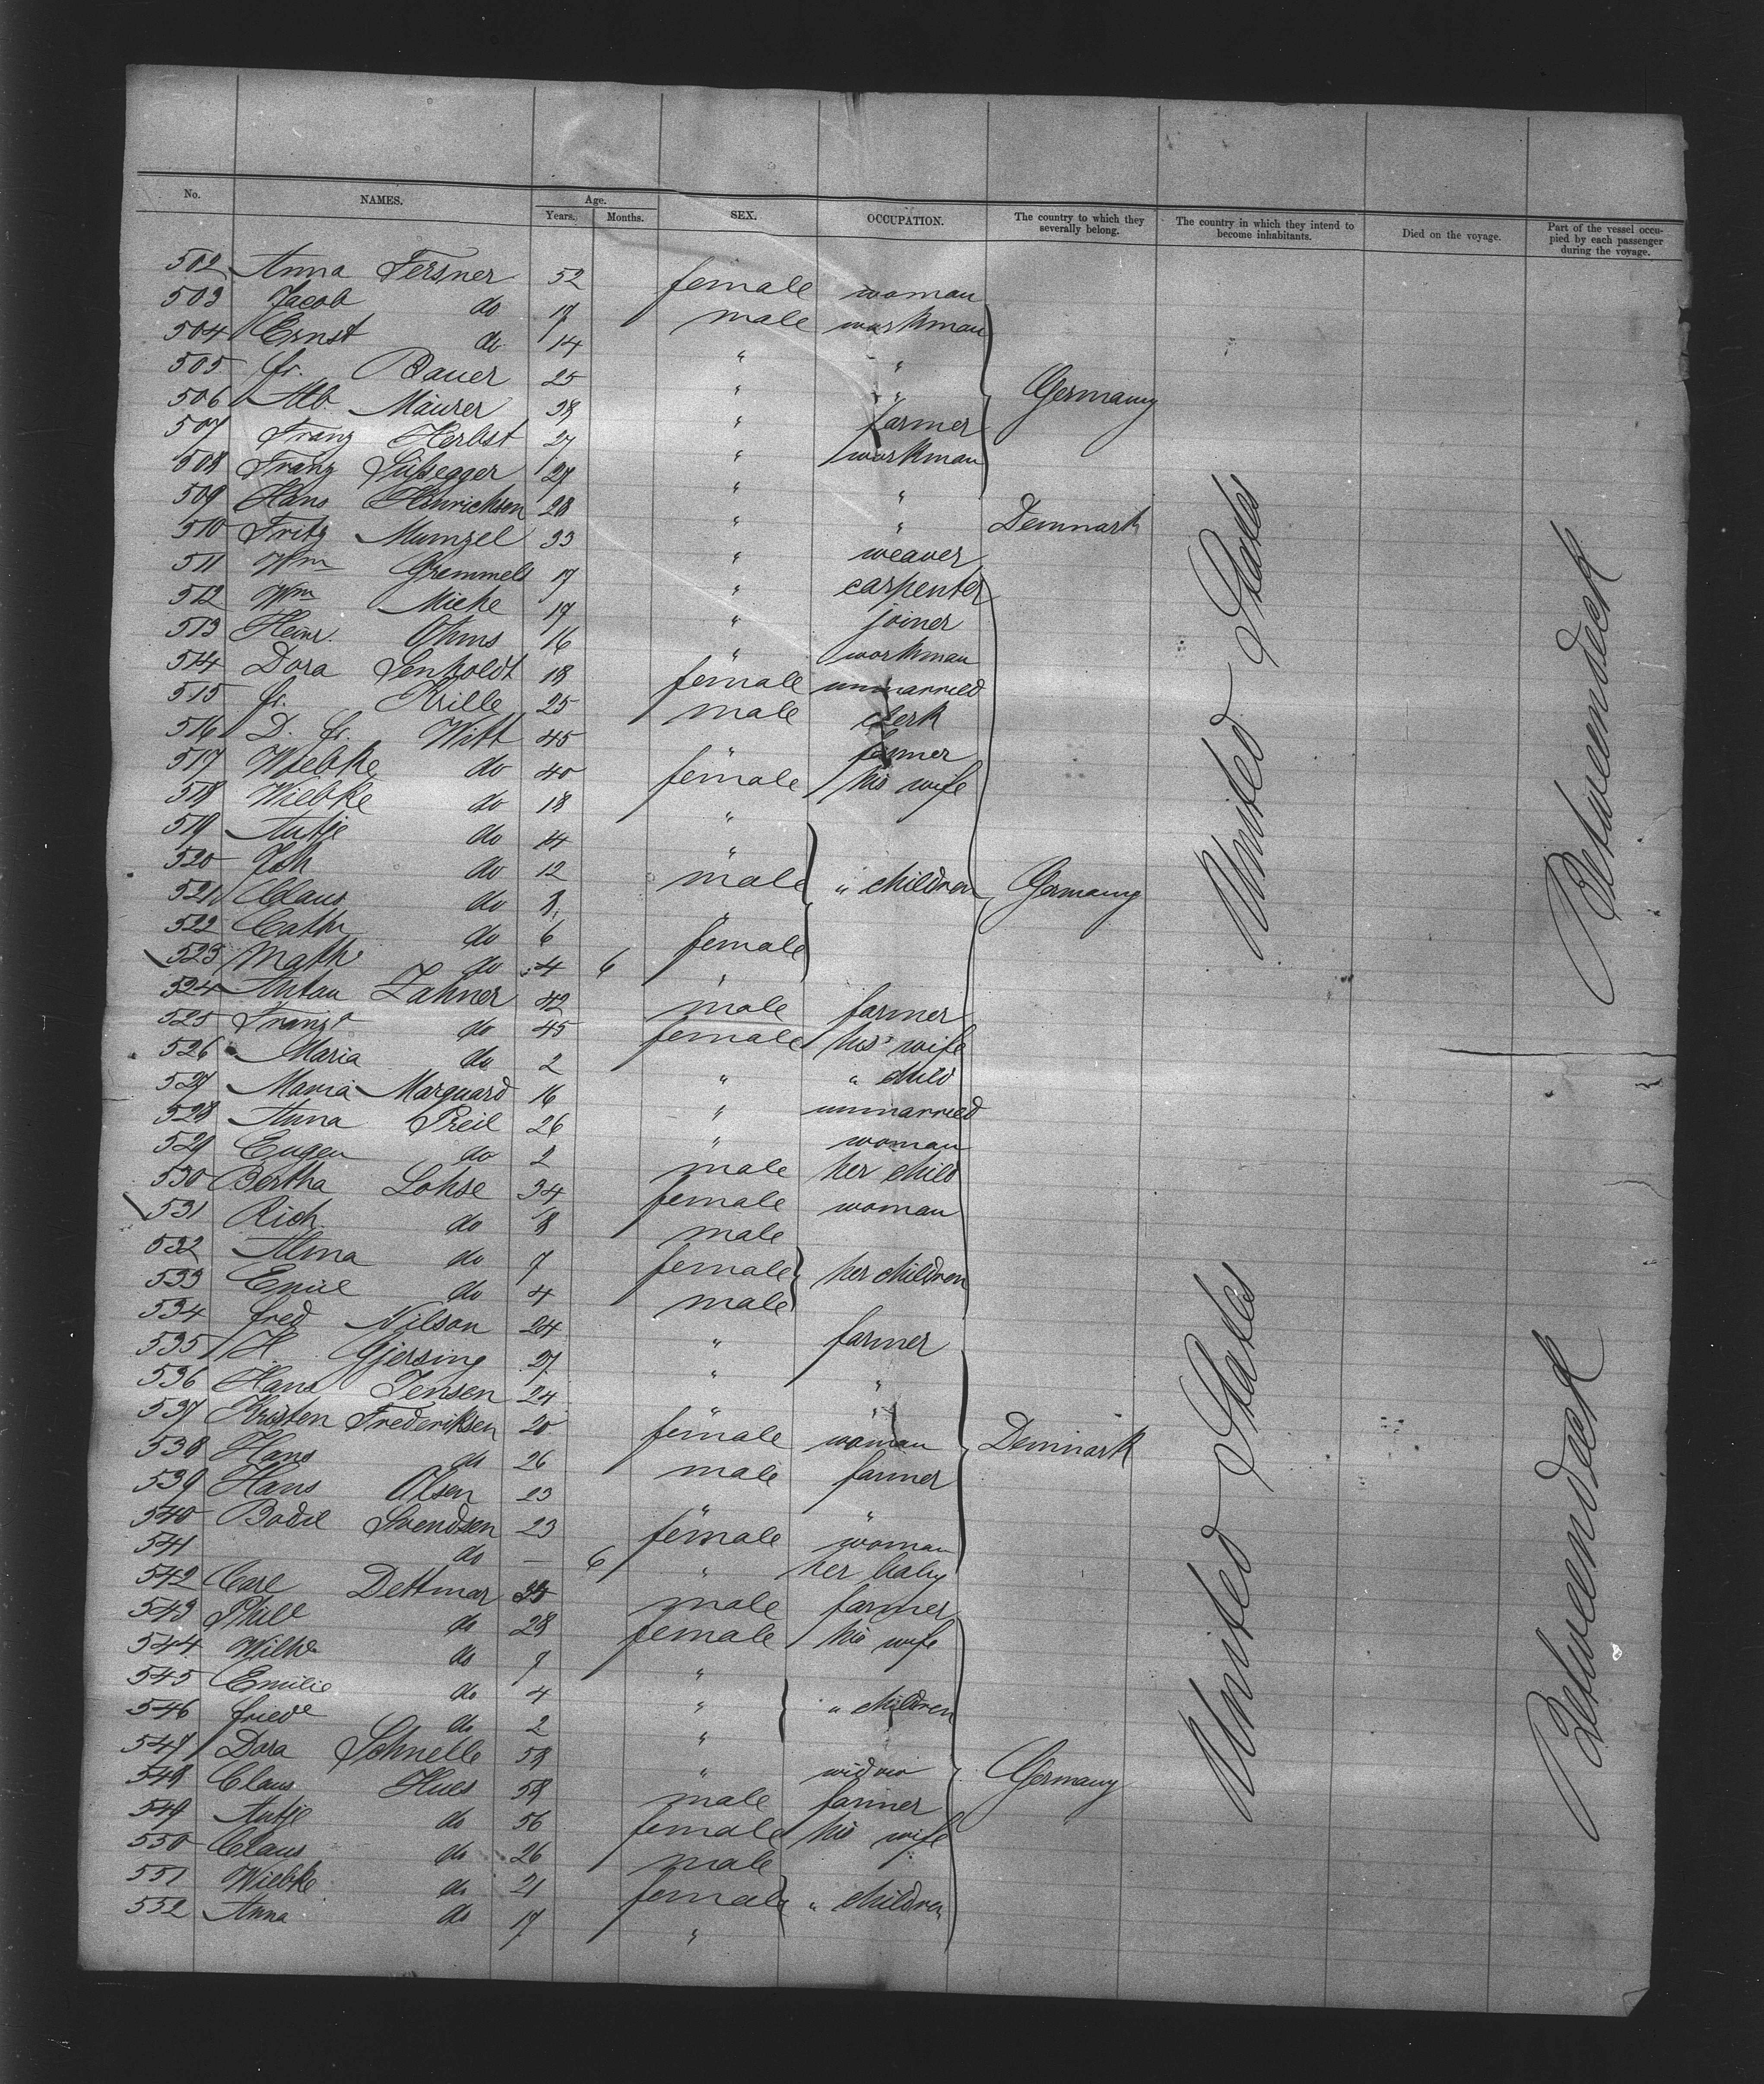 No. NAMES. Age. Years. Months. SEX. OCCUPATION. The country to which they severally belong. The country in which they intend to become inhabitants. Died on the voyage. Part of the vessel occupied by each passenger during the voyage.
502 Anna Fersner 52 female woman
503 Jacob do 19 male workman
504 Ernst do 14 " "
505 Fr. Bauer 25 " " Germany
506 Alb. Mäurer 38 " farmer
507 Franz Herbst 27 " workman
508 Franz 27 " "
509 Hans Hinrichsen 28 " " Denmark
510 Fritz Munzel 33 " weaver
511 Wm Gremmels 17 " carpenter
512 Wm Mieke 17 " joiner
513 Heinr. Ohms 16 " workman
514 Dora Senholdt 18 female unmarried
515 Fr. Krille 25 male clerk
516 D. Fr. Witt 45 " farmer
517 Wiebke do 40 female his wife
518 Wiebke do 18 "
519 Antje do 14 "
520 Joh do 12 male " children Germany
521 Claus do 8 "
522 Cath do 6 female
523 Math do 4 6 "
524 Antau Zahner 42 male farmer
525 Franza do 45 female his wife
526 Maria do 2 " " child
527 Maria Marquard 16 " unmarried
528 Anna Preil 26 " woman
529 Eugen do 2 male her child
530 Bertha Lohse 34 female woman
531 Rich. do 8 male
532 Alma do 7 female her children
533 Emil do 4 male
534 Fred Nilson 24 " farmer
535 H. Gjersing 27 " "
536 Hans Jensen 24 " "
537 Kristen Frederiksen 20 female woman Denmark
538 Hans do 26 male farmer
539 Hans Olsen 23 " "
540 Bodil Svendsen 23 female woman
541 do — 6 " her baby
542 Carl Dettmar 35 male farmer
543 Phile do 28 female his wife
544 Wilhe do 7 "
545 Emilie do 4 " " children
546 Friede do 2 "
547 Dora Schnelle 58 " widow Germany
548 Claus Hues 58 male farmer
549 Antje do 56 female his wife
550 Claus do 26 male
551 Wiebke do 21 female " children
552 Anna do 17 "
United States
United States
Betweendeck
Betweendeck